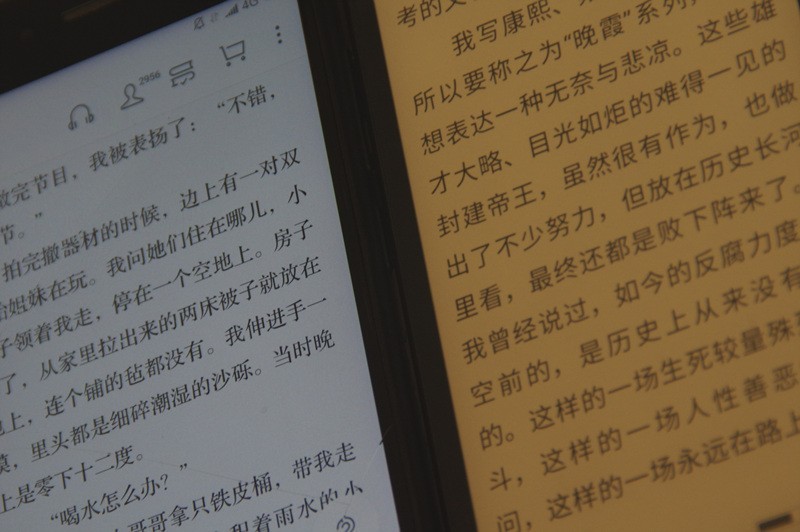 4G
2956
做完节目，我被表扬了：“不错，
节。”
拍完撤器材的时候，边上有一对双
胎姐妹在玩。我问她们住在哪儿，小
子领着我走，停在一个空地上。房子
了，从家里拉出来的两床被子就放在
地上，连个铺的毡都没有。我伸进手一
摸，里头都是细碎潮湿的沙砾。当时晚
上是零下十二度。
“喝水怎么办？”
小哥哥拿只铁皮桶，带我走
积着雨水的小
考的文
我写康熙、
所以要称之为“晚霞”系列，
想表达一种无奈与悲凉。这些雄
才大略、目光如炬的难得一见的
封建帝王，虽然很有作为，也做
出了不少努力，但放在历史长河
里看，最终还都是败下阵来了。
我曾经说过，如今的反腐力度
空前的，是历史上从来没有
的。这样的一场生死较量殊
斗，这样的一场人性善恶
问，这样的一场永远在路上